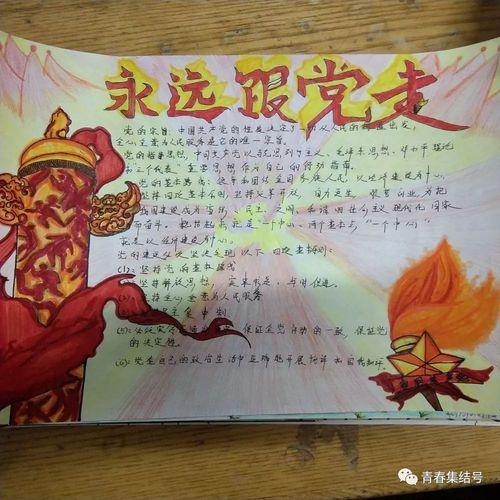 永远跟党走
党的宗旨：中国共产党的性质决定了一切从人民的利益出发，
全心全意为人民服务是它的唯一宗旨。
党的指导思想，中国共产党以马克思列宁主义、毛泽东思想、邓小平理论
和"三个代表"重要思想作为自己的行动指南。
党的基本路线：领导和团结全国各族人民，以经济建设为中心，
坚持四项基本原则，坚持改革开放，自力更生，艰苦创业，为把
我国建设成为富强、民主、文明、和谐的社会主义现代化国家
而奋斗。概括起来就是"一个中心、两个基本点"，"一个中心"
就是以经济建设为中心。
党的建设必须坚决实现以下四项基本
(1)：坚持党的基本路线
坚持解放思想，实事求是，与时俱进。
坚持全心全意为人民服务
坚持民主集中制
(5)：保证全党行动的一致，保证党
的决定
(6)：党在自己的政治生活中正确地开展批评和自我批评。
青春集结号